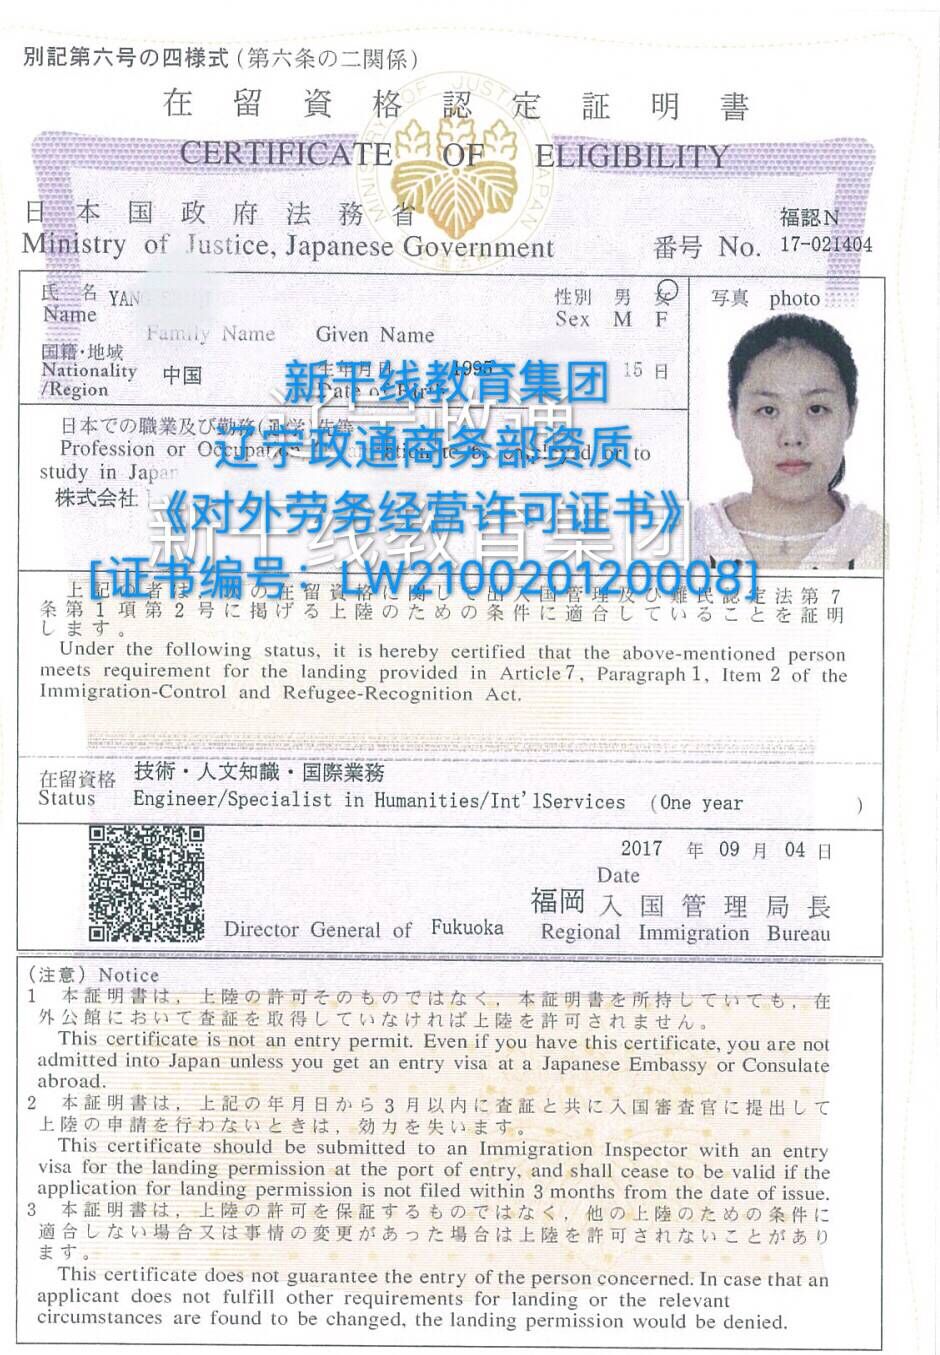 別記第六号の四様式(第六条の二関係)
在留資格認定証明書
CERTIFICATE OF ELIGIBILITY
MINISTRY OF JUSTICE JAPAN
日本国政府法務省
Ministry of Justice, Japanese Government
福認N
番号 No. 17-021404
氏名 YAN
Name
Family Name Given Name
性別 男 女
Sex M F
写真 photo
国籍・地域
Nationality
/Region
中国
生年月日 1995 15 日
Date of Birth
新干线教育集团
辽宁政通
日本での職業及び勤務(通学)先等
Profession or Occupation to be employed or to
study in Japan
辽宁政通商务部资质
株式会社
《对外劳务经营许可证书》
新干线教育集团
[证书编号：LW210020120008]
上記の者は、次の在留資格に関して出入国管理及び難民認定法第7
条第1項第2号に掲げる上陸のための条件に適合していることを証明
します。
Under the following status, it is hereby certified that the above-mentioned person
meets requirement for the landing provided in Article 7, Paragraph 1, Item 2 of the
Immigration-Control and Refugee-Recognition Act.
在留資格 技術・人文知識・国際業務
Status Engineer/Specialist in Humanities/Int'lServices (One year )
2017 年 09 月 04 日
Date
福岡 入国管理局長
Director General of Fukuoka Regional Immigration Bureau
(注意) Notice
1 本証明書は、上陸の許可そのものではなく、本証明書を所持していても、在
外公館において査証を取得していなければ上陸を許可されません。
This certificate is not an entry permit. Even if you have this certificate, you are not
admitted into Japan unless you get an entry visa at a Japanese Embassy or Consulate
abroad.
2 本証明書は、上記の年月日から3月以内に査証と共に入国審査官に提出して
上陸の申請を行わないときは、効力を失います。
This certificate should be submitted to an Immigration Inspector with an entry
visa for the landing permission at the port of entry, and shall cease to be valid if the
application for landing permission is not filed within 3 months from the date of issue.
3 本証明書は、上陸の許可を保証するものではなく、他の上陸のための条件に
適合しない場合又は事情の変更があった場合は上陸を許可されないことがあり
ます。
This certificate does not guarantee the entry of the person concerned. In case that an
applicant does not fulfill other requirements for landing or the relevant
circumstances are found to be changed, the landing permission would be denied.